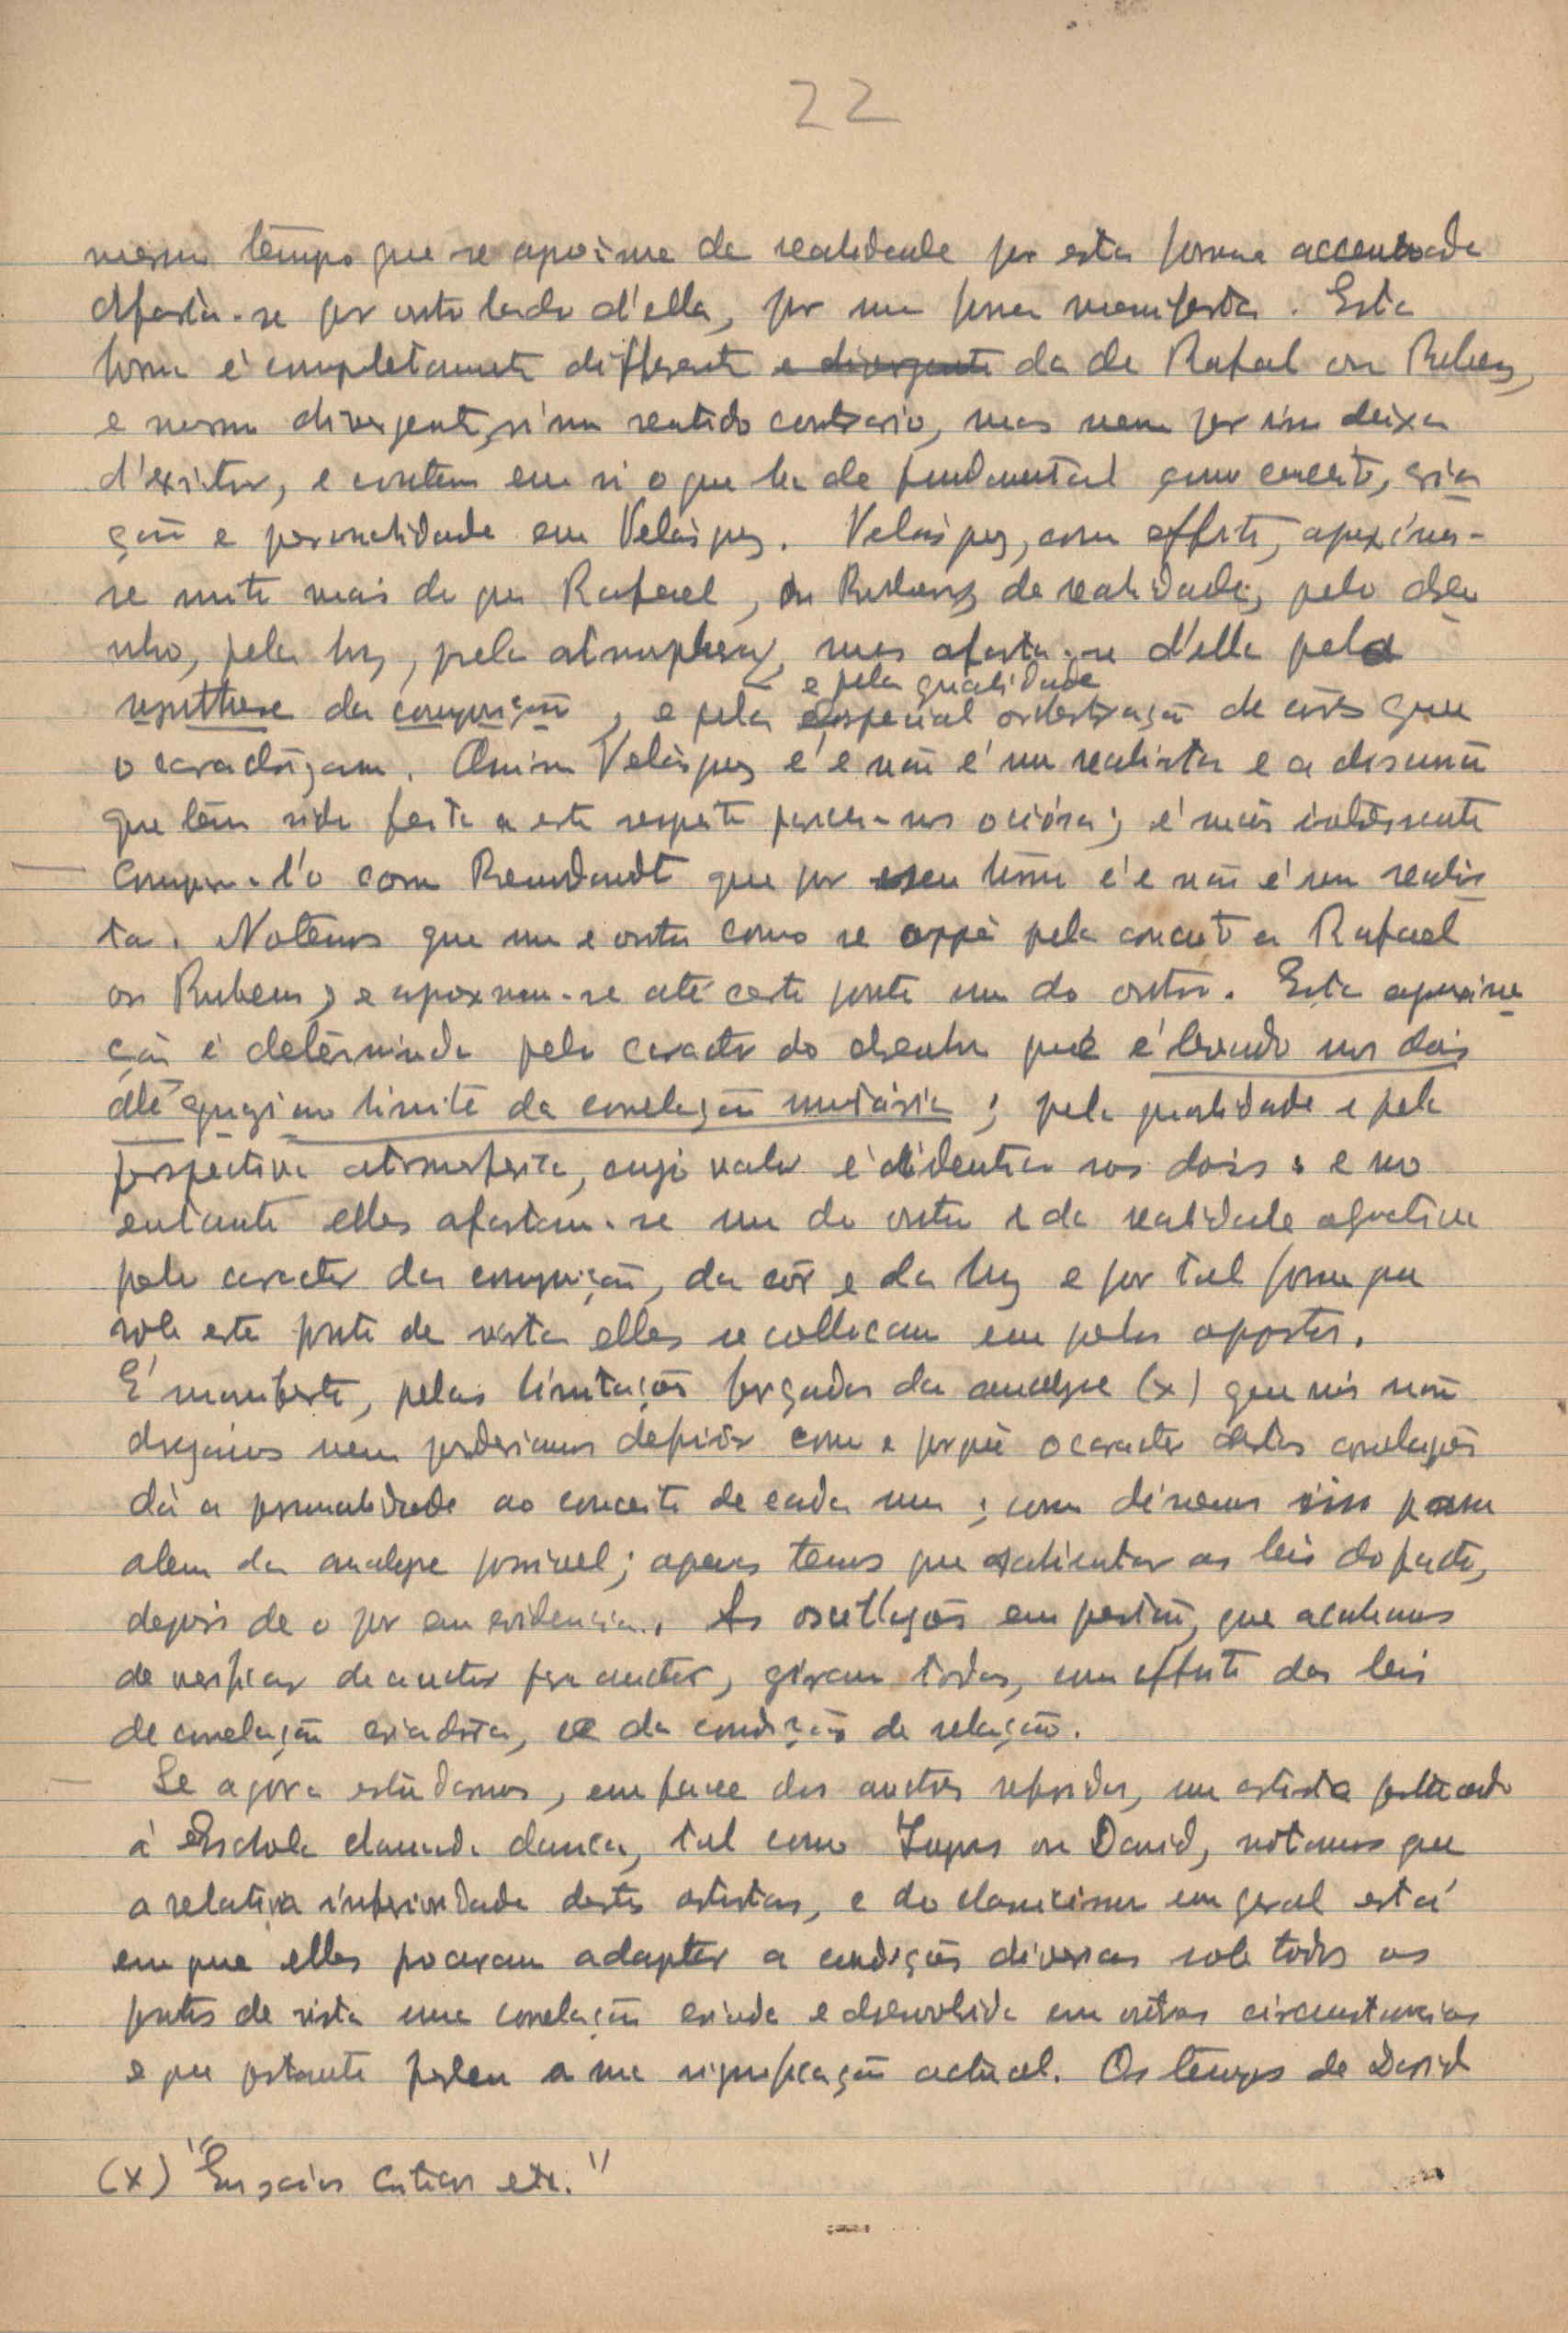 22
mesmo tempo que se aproxima da realidade por esta forma accentuada
afasta-se por outro lado d'ella, por uma forma manifesta. Esta
forma é completamente differente e divergente da de Rafael ou Rubens,
e mesmo divergente, n'um sentido contrario, mas nem por isso deixa
d'existir, e contem em si o que ha de fundamental como conceito, cria
ção e personalidade em Velásquez. Velásquez, com effeito, aproxima-
se muito mais do que Rafael, ou Rubens, da realidade, pelo dese
nho, pela luz, pela atmosphera, mas afasta-se d'ella pela
e pela qualidade
synthese da composição, e pela especial orchestração de côres que
o caracterizam. Assim Velásquez é e não é um realista e a discussão
que tem sido feita a este respeito parece-nos ociosa; é mais interessante
compara-l'o com Rembrandt que por seu turno é e não é um realis
ta. Notemos que um e outro como se oppõe pelo conceito a Rafael
ou Rubens, e aproximam-se até certo ponto um do outro. Esta aproxima
ção é determinada pelo caracter do desenho que é levado nos dois
até quazi ao limite da correlação unitária; pela qualidade e pela
perspectiva atmosferica, cujo valor é identico nos dois: e no
entanto elles afastam-se um do outro e da realidade objectiva
pelo caracter da composição, da côr e da luz e por tal forma que
sob este ponto de vista elles se collocam em polos oppostos.
É manifesto, pelas limitações forçadas da analyse (x) que nós não
desejamos nem poderiamos definir como e porquê o caracter destas correlações
dá a personalidade ao conceito de cada um; como dissemos isso passa
alem da analyse possivel; apenas temos que salientar as leis do facto,
depois de o pôr em evidencia. As oscillações em questão, que acabamos
de verificar de auctor para auctor, giram todas, com effeito das leis
de correlação creadora, e da condição de relação.
Se agora estudarmos, em face dos auctores referidos, um artista filiado
á Eschola chamada classica, tal como Ingres ou David, notamos que
a relativa inferioridade destes artistas, e do classicismo em geral está
em que elles procuram adaptar a condições diversas sob todos os
pontos de vista uma correlação criada e desenvolvida em outras circumstancias
e que portanto perdeu a sua significação actual. Os tempos de David
(x) "Ensaios Criticos etc."